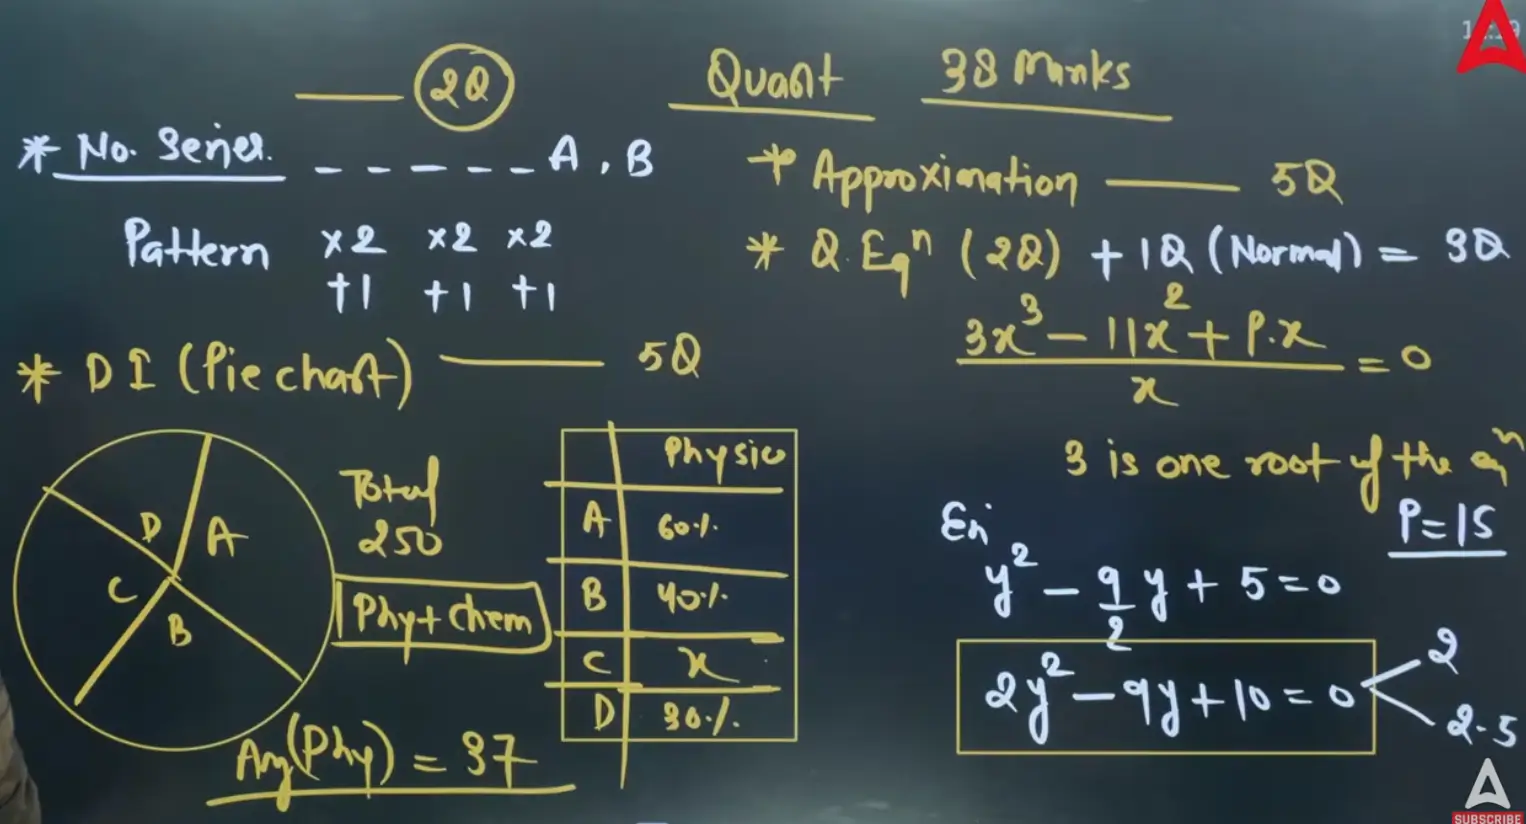 2Q
Quant 38 Marks
* No. Series. _ _ _ _ _ A , B
Pattern ×2 ×2 ×2
+1 +1 +1
* DI (Pie chart) — 5Q
D A C B
Total
250
Phy + chem
Physic
A 60%
B 40%
C x
D 30%
Avg(Phy) = 37
* Approximation — 5Q
* Q. Eqⁿ (2Q) + 1Q (Normal) = 3Q
3x³ - 11x² + P.x
x
= 0
3 is one root of the eqⁿ
P = 15
Eⁿ
y² - 9/2 y + 5 = 0
2y² - 9y + 10 = 0
2
2.5
SUBSCRIBE